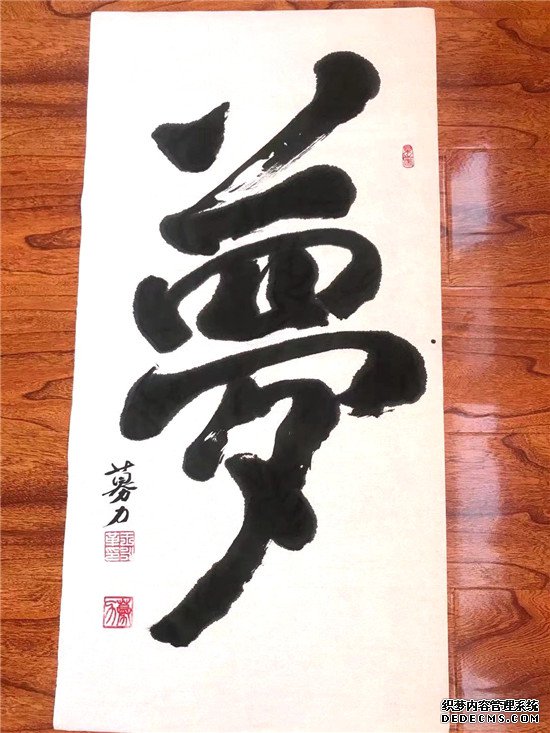 夢
募力
织梦内容管理系统
DEDECMS.COM